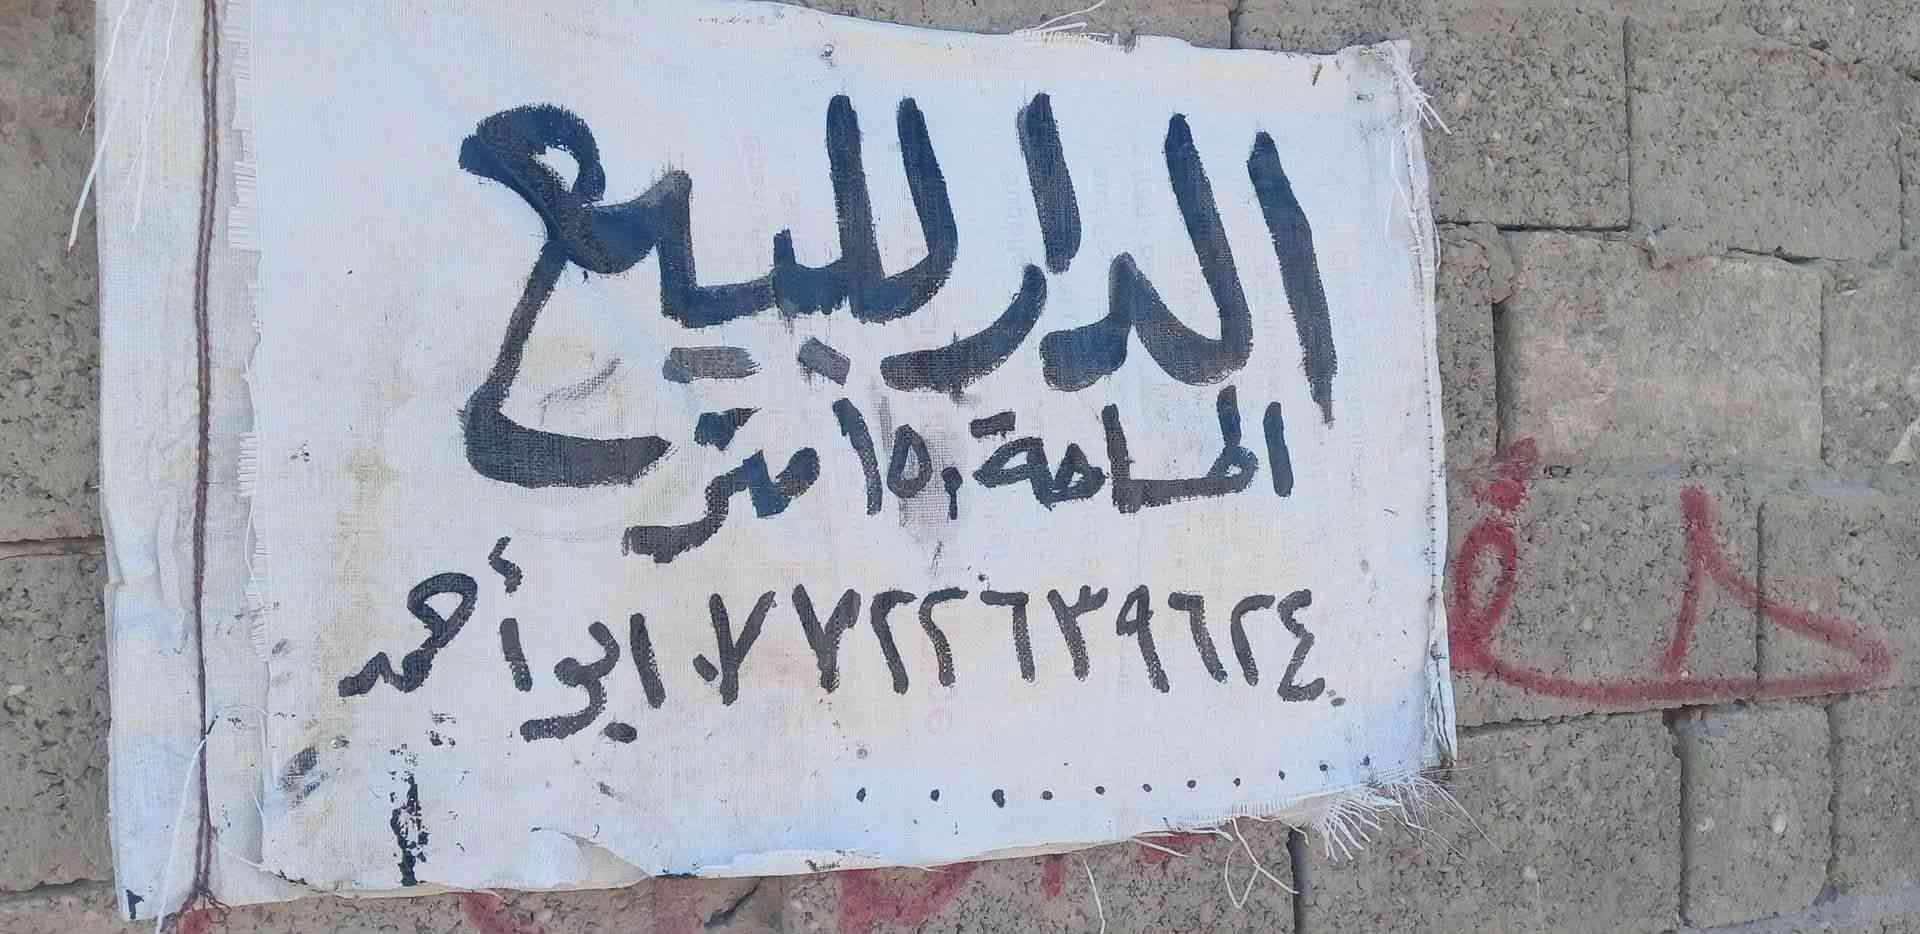 الدار للبيع
المساحة ١٥٠ متر
٧٧٢٢٦٣٩٦٢٤ ابو أحمد